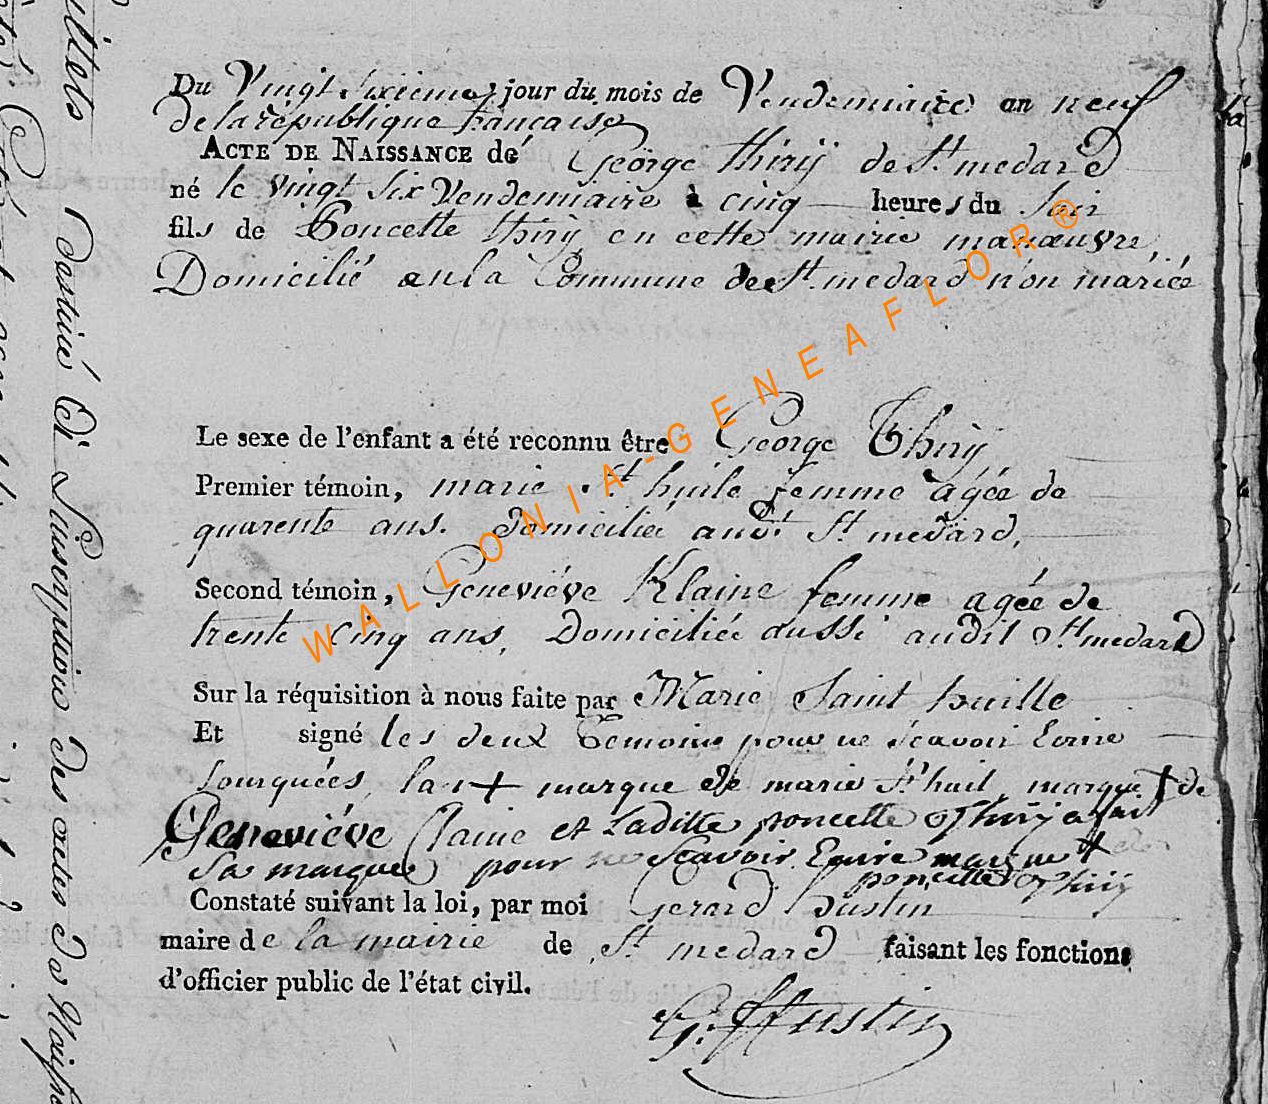 Du Vingt Sixieme jour du mois de Vendemiaire an neuf
De la république française
ACTE DE NAISSANCE de George thirÿ de St medard
né le vingt six Vendemiaire à cinq heures du Soir
fils de Poncette thirÿ en cette mairie manœuvre
Domicilié en la Commune de St medard non mariée
Le sexe de l'enfant a été reconnu être George Thirÿ
Premier témoin, marie St huile femme agée de
quarente ans. Domiciliée audt St medard,
Second témoin, Geneviéve Klaine femme agée de
trente cinq ans, Domiciliée aussi audit St medard
Sur la réquisition à nous faite par Marie Saint huille
Et signé les deux temoins pour ne scavoir Ecrire
la + marque de marie St huil marque + de
Geneviéve Claine et Laditte poncette Thirÿ a fait
Sa marque pour ne Scavoir Ecrire marque +
poncette Thirÿ
Constaté suivant la loi, par moi Gerard hustin
maire de la mairie de St medard faisant les fonctions
d'officier public de l'état civil.
G. Hustin
destiné à L'inscription des actes de Naiss
WALLONIA-GENEAFLOR®